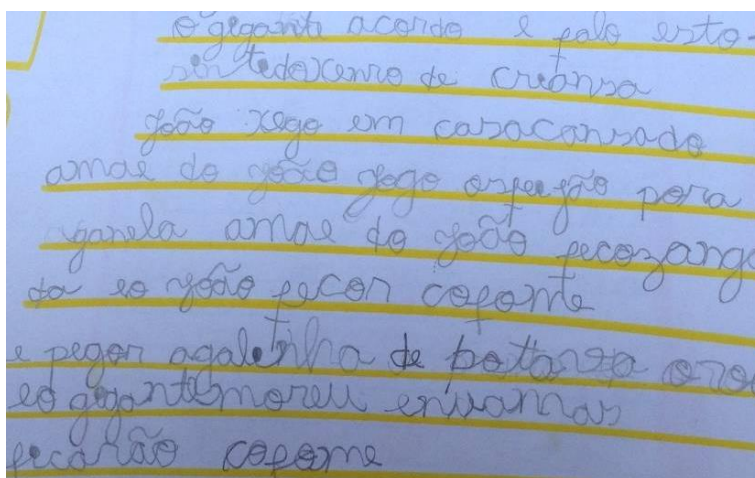 o gigante acordo e falo esto-
sintedoxenro de criansa
joão xego em casacansado
amae do joão jogo osfeejão pora
ganela amae do joão fecozango
da eo joão fecon cofome
e pegon agalinha de botarso oro
eo gigantemoreu enivamas
fecarão cofome